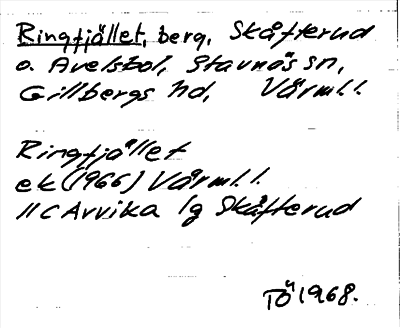 Ringfjället, berg, Skåfterud
o. Avelsbol, Stavnäs sn,
Gillbergs hd, Värml.l.
Ringfjället
ek (1966) Värml.l.
11 C Arvika lg Skåfterud
TÖ 1968.